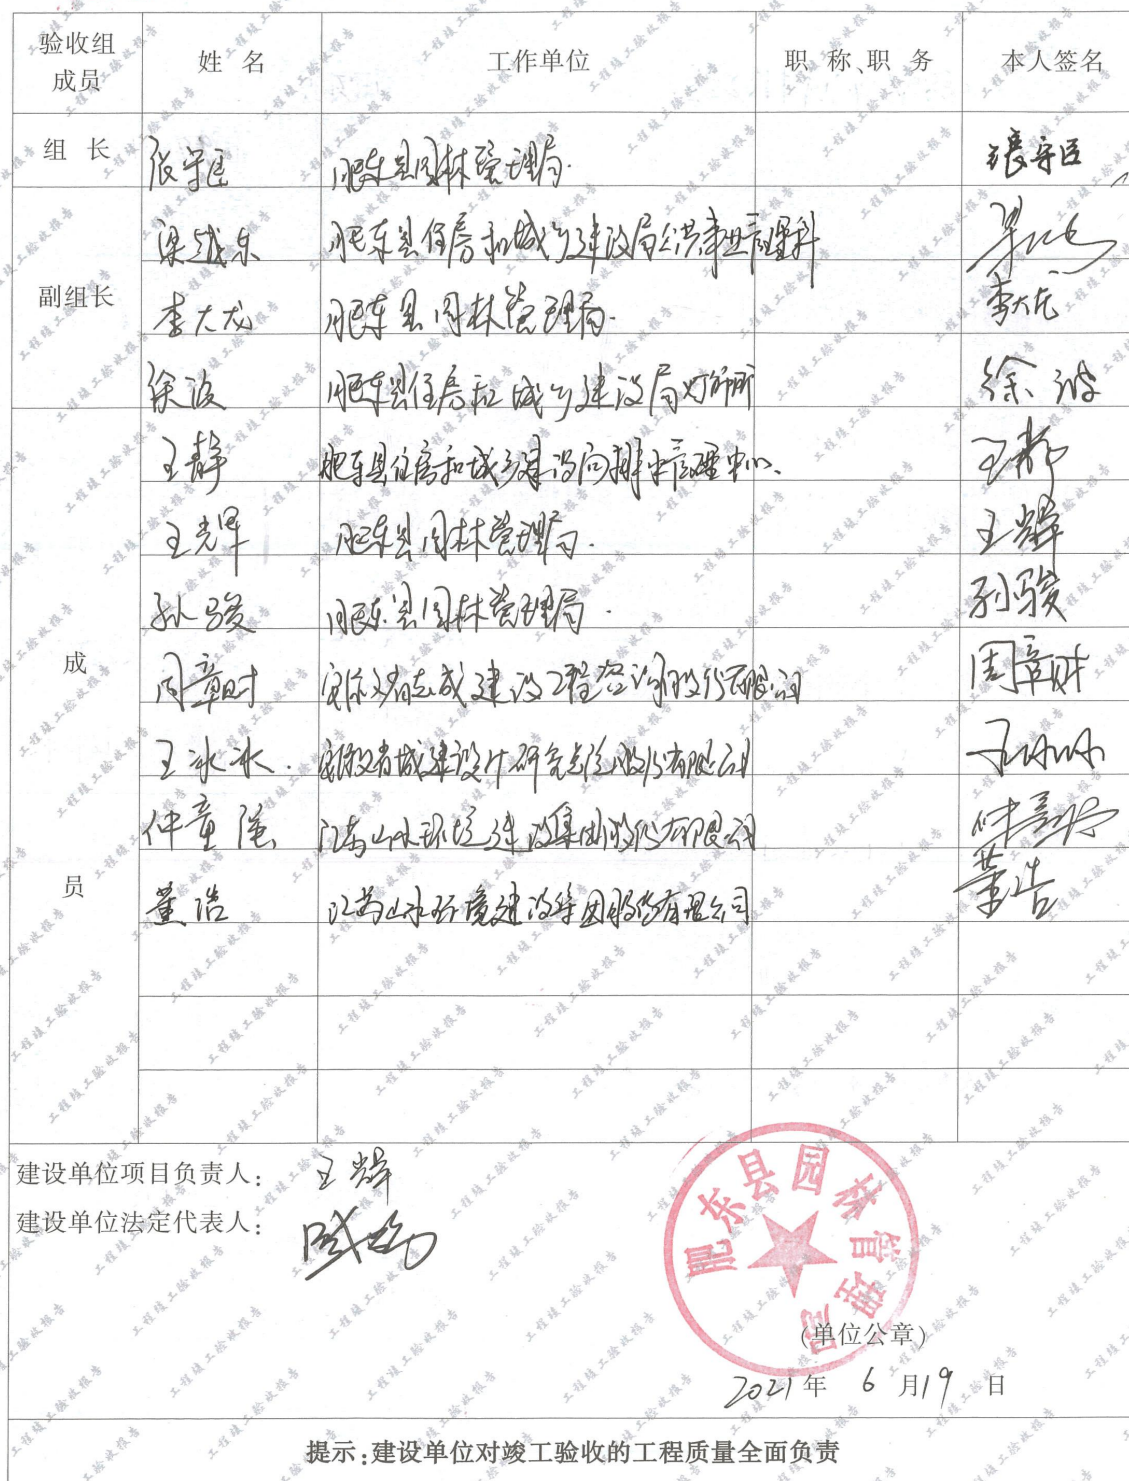 验收组成员 姓名 工作单位 职称、职务 本人签名
组长 张守臣 肥东县园林管理局. 张守臣
副组长
梁越东 肥东县住房和城乡建设局公共事业管理科
李大龙 肥东县园林管理局. 李大龙
徐波 肥东县住房和城乡建设局灯饰所 徐波
成员
王静 肥东县住房和城乡建设局排水管理中心、 王静
王光辉 肥东县园林管理局. 王光辉
孙骏 肥东县园林管理局. 孙骏
周章财 安徽省志成建设工程咨询股份有限公司 周章财
王冰冰. 安徽省城建设计研究总院股份有限公司 王冰冰
仲童隆 江苏山水环境建设集团股份有限公司
董浩 江苏山水环境建设集团股份有限公司 董浩
建设单位项目负责人: 王光辉
建设单位法定代表人:
肥东县园林管理局
(单位公章)
2021年 6月19日
提示:建设单位对竣工验收的工程质量全面负责
工程竣工验收报告